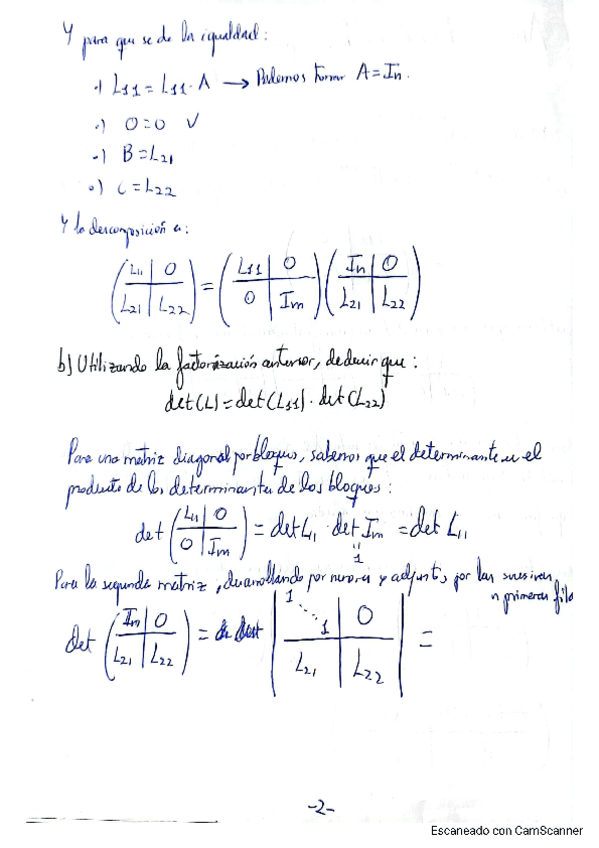 Y para que se de la igualdad:
·) L11 = L11 · A → Podemos tomar A = In.
·) 0 = 0 ✓
·) B = L21
·) C = L22
Y la descomposición es:
(L11 | 0 / L21 | L22) = (L11 | 0 / 0 | Im) (In | 0 / L21 | L22)
b) Utilizando la factorización anterior, deducir que:
det(L) = det(L11) · det(L22)
Para una matriz diagonal por bloques, sabemos que el determinante es el
producto de los determinantes de los bloques:
det (L11 | 0 / 0 | Im) = det L1 · det Im = det L11
"
1
Para la segunda matriz, desarrollando por menores y adjuntos, por las sucesivas
n primeras filas
det (Im | 0 / L21 | L22) = | 1 ⋱ 1 | 0 / L21 | L22 | =
-2-
Escaneado con CamScanner